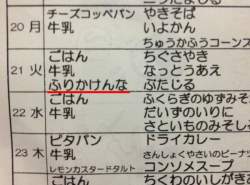 チーズコッペパン やきそば
20 月 牛乳 いよかん
ちゅうかふうコーンス
ごはん ちぐさやき
21 火 牛乳 なっとうあえ
ふりかけんな ぶたじる
ごはん ふくらぎのゆずみそ
22 水 牛乳 だいずのいりに
さといものみそし
ピタパン ドライカレー
23 木 牛乳 さんしょくやさいのピーナッ
レモンカスタードタルト コンソメスープ
ごはん ちくわのいしがき